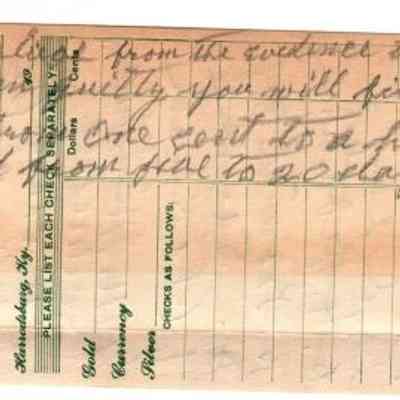 from the evidence
guilty you will fi
from one cent to a
from to 20 da
Harrodsburg, Ky. 19
PLEASE LIST EACH CHECK SEPARATELY
Dollars Cents
Gold
Currency
Silver
CHECKS AS FOLLOWS: